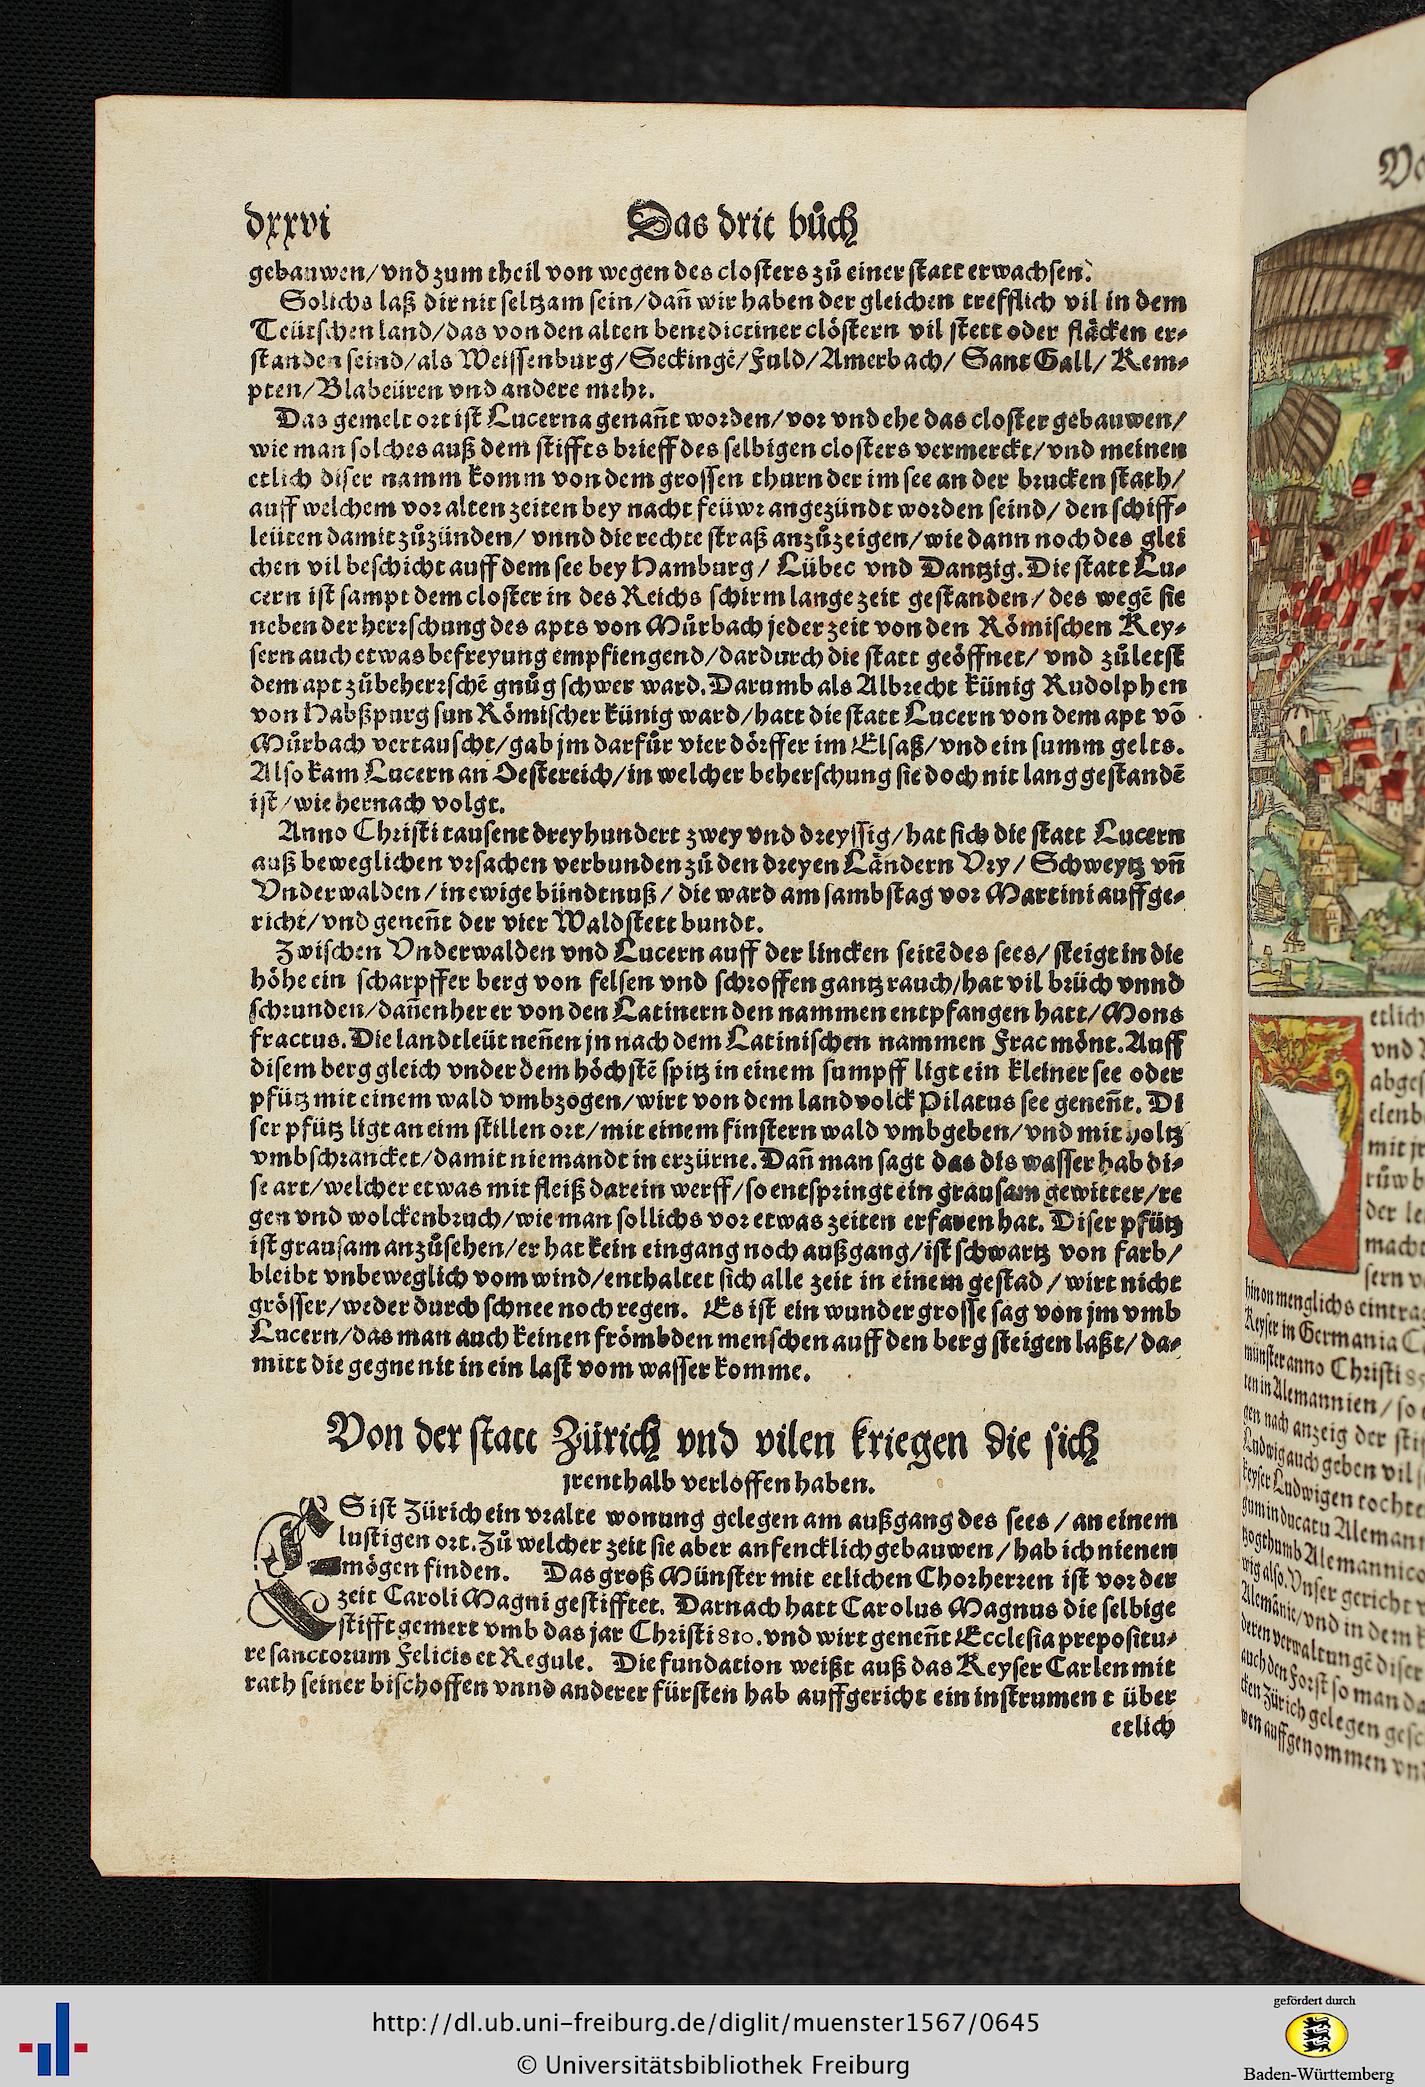 dxxvi Das drit bůch
gebauwen/vnd zum theil von wegen des closters zů einer statt erwachsen.
Solichs laß dir nit seltzam sein/dañ wir haben der gleichen trefflich vil in dem
Teütschen land/das von den alten benedictiner clöstern vil stett oder fläcken er-
standen seind/als Weissenburg/Seckingē/Fuld/Amerbach/ Sant Gall/ Kem-
pten/Blabeüren vnd andere mehr.
Das gemelt ort ist Lucerna genañt worden/vor vnd ehe das closter gebauwen/
wie man solches auß dem stiffts brieff des selbigen closters vermerckt/vnd meinen
etlich diser namm komm von dem grossen thurn der im see an der brucken stath/
auff welchem vor alten zeiten bey nacht feüwr angezündt worden seind/ den schiff-
leüten damit zůzünden/ vnnd die rechte straß anzůzeigen/wie dann noch des glei
chen vil beschicht auff dem see bey Hamburg/ Lübec vnd Dantzig. Die statt Lu-
cern ist sampt dem closter in des Reichs schirm lange zeit gestanden/ des wegē sie
neben der herrschung des apts von Můrbach jeder zeit von den Römischen Key-
sern auch etwas befreyung empfiengend/dardurch die statt geöffnet/ vnd zůletst
dem apt zůbeherrschē gnůg schwer ward. Darumb als Albrecht künig Rudolphen
von Habßpurg sun Römischer künig ward/hatt die statt Lucern von dem apt vō
Můrbach vertauscht/gab jm darfůr vier dörffer im Elsaß/vnd ein summ gelts.
Also kam Lucern an Oestereich/in welcher beherschung sie doch nit lang gestandē
ist/wie hernach volgt.
Anno Christi tausent dreyhundert zwey vnd dreyssig/hat sich die statt Lucern
auß beweglichen vrsachen verbunden zů den dreyen Ländern Vry/ Schweytz vñ
Vnderwalden/in ewige bündtnuß/ die ward am sambstag vor Martini auffge-
richt/vnd geneñt der vier Waldstett bundt.
Zwischen Vnderwalden vnd Lucern auff der lincken seitē des sees/ steigt in die
höhe ein scharpffer berg von felsen vnd schroffen gantz rauch/hat vil brüch vnnd
schrunden/dañenher er von den Latinern den nammen entpfangen hatt/Mons
fractus. Die landtleüt neñen jn nach dem Latinischen nammen Fracmönt. Auff
disem berg gleich vnder dem höchstē spitz in einem sumpff ligt ein kleiner see oder
pfütz mit einem wald vmbzogen/wirt von dem landvolck Pilatus see geneñt. Di
ser pfütz ligt an eim stillen ort/mit einem finstern wald vmbgeben/vnd mit holtz
vmbschrancket/damit niemandt in erzürne. Dañ man sagt das dis wasser hab di-
se art/welcher etwas mit fleiß darein werff/so entspringt ein grausam gewitter/re
gen vnd wolckenbruch/wie man sollichs vor etwas zeiten erfaren hat. Diser pfütz
ist grausam anzůsehen/er hat kein eingang noch außgang/ist schwartz von farb/
bleibt vnbeweglich vom wind/enthaltet sich alle zeit in einem gestad/wirt nicht
grösser/weder durch schnee noch regen. Es ist ein wunder grosse sag von jm vmb
Lucern/das man auch keinen frömbden menschen auff den berg steigen laßt/ da-
mitt die gegne nit in ein last vom wasser komme.
Von der statt Zürich vnd vilen kriegen die sich
jrenthalb verloffen haben.
ES ist Zürich ein vralte wonung gelegen am außgang des sees/an einem
lustigen ort. Zů welcher zeit sie aber anfencklich gebauwen/hab ich nienen
mögen finden. Das groß Münster mit etlichen Chorherren ist vor der
zeit Caroli Magni gestifftet. Darnach hatt Carolus Magnus die selbige
stifft gemert vmb das jar Christi 810. vnd wirt geneñt Ecclesia prepositu-
re sanctorum Felicis et Regule. Die fundation weißt auß das Keyser Carlen mit
rath seiner bischoffen vnnd anderer fürsten hab auffgericht ein instrument über
etlich
etlich
vnd
abges
elenb
mit jr
růw b
der le
macht
sern v
hin on menglichs eintrag
Keyser in Germania
münster anno Christi
ten in Alemannien/so
gen nach anzeig der stif
Ludwig auch geben vil
keyser Ludwigen tochter
gum in ducatu Alemann
tzogthumb Alemannico
wig also. Vnser gericht
Alemānie/vnd in dem
deren verwaltungē diser
auch den Forst so man da
cken Zürich gelegen gesc
wen auffgenommen vnd
http://dl.ub.uni-freiburg.de/diglit/muenster1567/0645
© Universitätsbibliothek Freiburg
gefördert durch
Baden-Württemberg